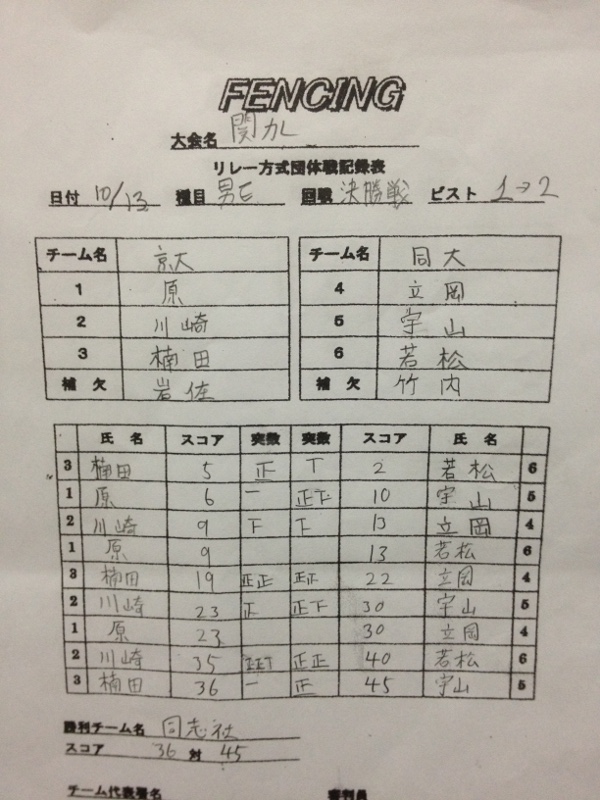 FENCING
大会名 関カレ
リレー方式団体戦記録表
日付 10/13 種目 男E 回戦 決勝戦 ピスト 1→2
チーム名 京大 チーム名 同大
1 原 4 立岡
2 川崎 5 宇山
3 楠田 6 若松
補欠 岩佐 補欠 竹内
氏名 スコア 突数 突数 スコア 氏名
3 楠田 5 正 T 2 若松 6
1 原 6 一 正下 10 宇山 5
2 川崎 9 下 下 13 立岡 4
1 原 9 13 若松 6
3 楠田 19 正正 22 立岡 4
2 川崎 23 正下 30 宇山 5
1 原 23 30 立岡 4
2 川崎 35 正正T 正正 40 若松 6
3 楠田 36 一 正 45 宇山 5
勝利チーム名 同志社
スコア 36 対 45
チーム代表署名 審判員